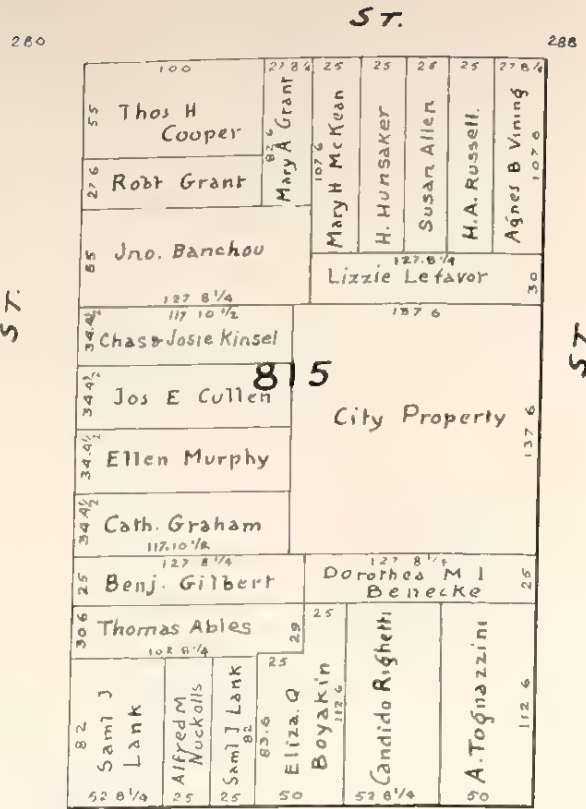 ST.
280
288
100
27 8¼
25
25
25
25
27 8¼
55
Thos H
Cooper
82 6
Mary A Grant
107 6
Mary H McKean
H. Hunsaker
Susan Allen
H.A. Russell.
Agnes B Vining
107 6
27 6
Robt Grant
55
Jno. Banchou
127 8¼
127.8¼
Lizzie Lefavor
30
ST.
ST.
117 10½
137 6
34.4½
Chas & Josie Kinsel
815
34.4½
Jos E Cullen
City Property
137 6
34.4½
Ellen Murphy
34.4½
Cath. Graham
117.10½
127 8¼
25
Benj. Gilbert
127 8¼
Dorothea M I
Benecke
25
30 6
Thomas Ables
29
102 8¼
25
25
82
Saml J
Lank
Alfred M
Nuckolls
Saml J Lank
82
83.6
Eliza. Q
Boyakin
112 6
Candido Righetti
A. Tognazzini
112 6
52 8¼
25
25
50
52 8¼
50